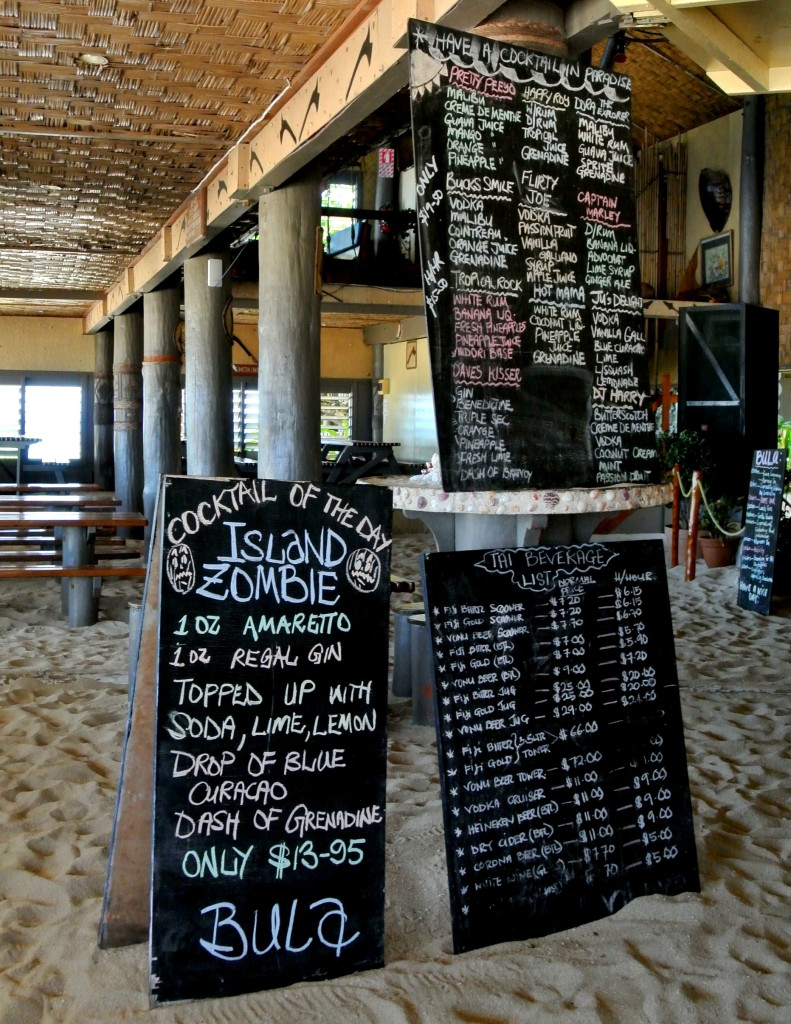 * HAVE A COCKTAIL IN PARADISE
PRETTY PEEYO
MALIBU
CREME DE MENTHE
GUAVA JUICE
MANGO "
ORANGE "
PINEAPPLE "
BUCKS SMILE
VODKA
MALIBU
COINTREAU
ORANGE JUICE
GRENADINE
TROPICAL ROCK
WHITE RUM
BANANA LIQ.
FRESH PINEAPPLES
PINEAPPLE JUICE
MIDORI BASE
DAVES KISSER
GIN
BENEDICTINE
TRIPLE SEC
ORANGE
PINEAPPLE
FRESH LIME
DASH OF BRANDY
HAPPY ROY
W/RUM
D/RUM
TROPICAL
JUICE
GRENADINE
FLIRTY
JOE
VODKA
PASSIONFRUIT
VANILLA
GALLIANO
SYRUP
APPLE JUICE
HOT MAMA
WHITE RUM
COCONUT LIQ
PINEAPPLE
JUICE
GRENADINE
DORA THE
EXPLORER
MALIBU
WHITE RUM
GUAVA JUICE
SPRITE
GRENADINE
CAPTAIN
MARLEY
D/RUM
BANANA LIQ.
ADVOCAAT
LIME SYRUP
GINGER ALE
JU'S DELIGHT
VODKA
VANILLA GALL
BLUE CURACAO
LIME
L/SQUASH
LEMONADE
DJ HARRY
BUTTERSCOTCH
CREME DE MENTHE
VODKA
COCONUT CREAM
MINT
ONLY
COCKTAIL OF THE DAY
ISLAND
ZOMBIE
1 OZ AMARETTO
1 OZ REGAL GIN
TOPPED UP WITH
SODA, LIME, LEMON
DROP OF BLUE
CURACAO
DASH OF GRENADINE
ONLY $13-95
BULA
TAI BEVERAGE
LIST
NORMAL PRICE H/HOUR
* FIJI BITTER SCOONER — $7.20 — $6.15
* FIJI GOLD SCOONER — $7.20 — $6.15
* VONU BEER SCOONER — $7.70 — $6.70
* FIJI BITTER (BTL) — $7.00 — $5.70
* FIJI GOLD (BTL) — $7.00 — $5.90
* VONU BEER (BTL) — $9.00 — $7.20
* FIJI BITTER JUG — $25.00 — $20.00
* FIJI GOLD JUG — $25.00 — $20.00
* VONU BEER JUG — $29.00
* FIJI BITTER
* FIJI GOLD TOWER $66.00
* VONU BEER TOWER — $72.00
* VODKA CRUISER — $11.00
* HEINEKEN BEER (BTL) — $11.00 — $9.00
* DRY CIDER (BTL) — $11.00 — $9.00
* CORONA BEER (BTL) — $11.00 — $9.00
* WHITE WINE (GL) — $7.70 — $5.00
$5.00
BULA
HAVE A NICE
DAY